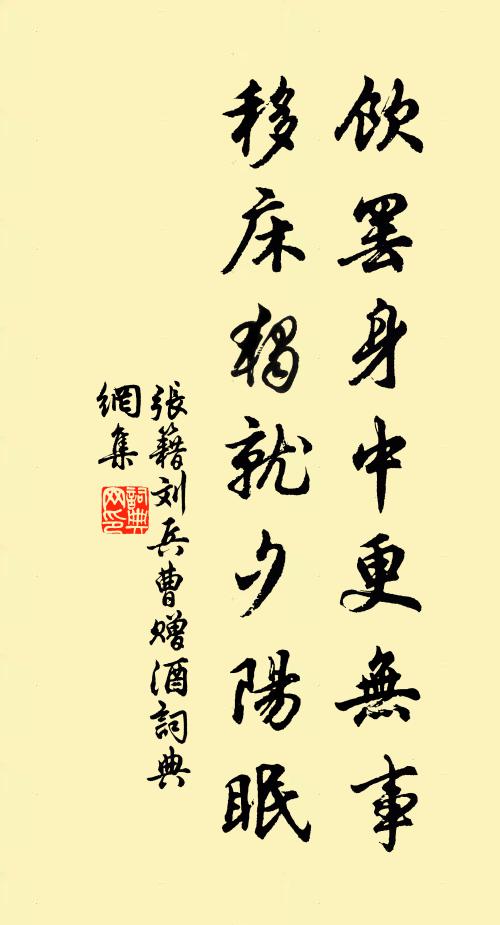 飲罷身中更無事
移床獨就夕陽眠
張籍刘兵曹贈酒詞典
網集
詞典
网印